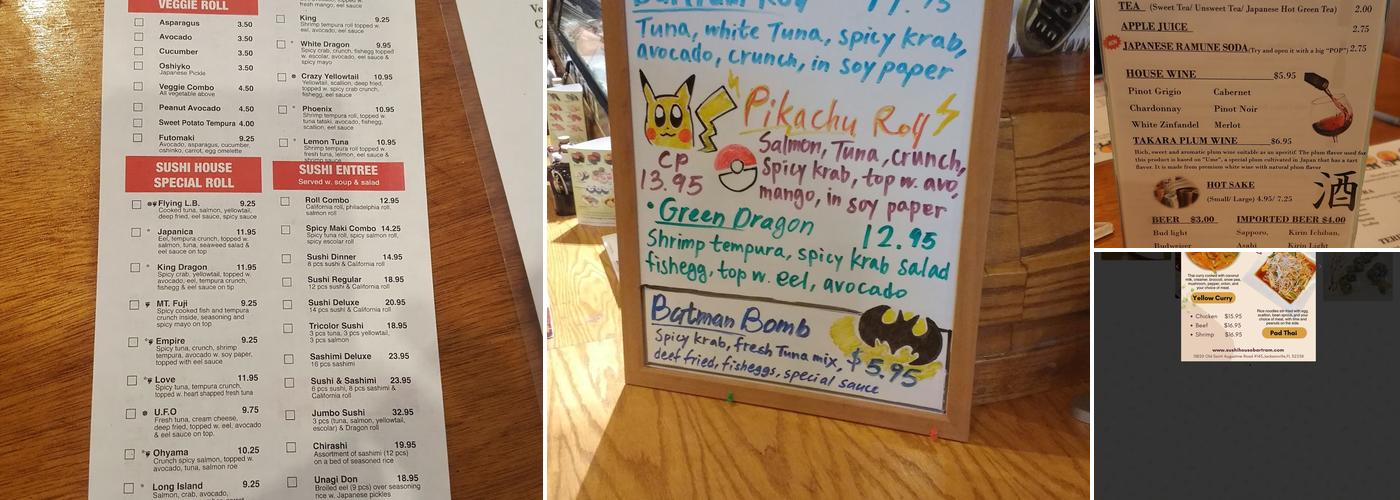 VEGGIE ROLL
Asparagus 3.50
Avocado 3.50
Cucumber 3.50
Oshiyko 3.50
Japanese Pickle
Veggie Combo 4.50
All vegetable above
Peanut Avocado 4.50
Sweet Potato Tempura 4.00
Futomaki 9.25
Avocado, asparagus, cucumber,
oshinko, carrot, egg omelette
SUSHI HOUSE
SPECIAL ROLL
Flying L.B. 9.25
Cooked tuna, salmon, yellowtail,
deep fried, eel sauce, spicy sauce
Japanica 11.95
Eel, tempura crunch, topped w.
salmon, tuna, seaweed salad &
eel sauce on top
King Dragon 11.95
Spicy crab, yellowtail, topped w.
avocado, eel, tempura crunch,
fishegg & eel sauce on top
MT. Fuji 9.25
Spicy cooked fish and tempura
crunch inside, seasoning and
spicy mayo on top
Empire 9.25
Spicy tuna, crunch, shrimp
tempura, avocado w. soy paper,
topped with eel sauce
Love 11.95
Spicy tuna, tempura crunch,
topped w. heart shapped fresh tuna
U.F.O 9.75
Fresh tuna, cream cheese,
deep fried, topped w. eel, avocado
& eel sauce on top.
Ohyama 10.25
Crunch spicy salmon, topped w.
avocado, tuna, salmon roe
Long Island 9.25
Salmon, crab, avocado,
King 9.25
Shrimp tempura roll topped w.
eel, avocado, eel sauce
White Dragon 9.95
Spicy crab, crunch, fishegg topped
w. escolar, avocado, eel sauce &
spicy mayo
Crazy Yellowtail 10.95
Yellowtail, scallion, deep fried,
topped w. spicy crab crunch,
fishegg, eel sauce
Phoenix 10.95
Shrimp tempura roll, topped w.
tuna tataki, avocado, fishegg,
scallion, eel sauce
Lemon Tuna 10.95
Shrimp tempura roll topped w.
fresh tuna, lemon, eel sauce &
SUSHI ENTREE
Served w. soup & salad
Roll Combo 12.95
California roll, philadelphia roll.
salmon roll
Spicy Maki Combo 14.25
Spicy tuna roll, spicy salmon roll,
spicy escolar roll
Sushi Dinner 14.95
8 pcs sushi & California roll
Sushi Regular 18.95
12 pcs sushi & California roll
Sushi Deluxe 20.95
14 pcs sushi & California roll
Tricolor Sushi 18.95
3 pcs tuna, 3 pcs yellowtail,
3 pcs salmon
Sashimi Deluxe 23.95
16 pcs sashimi
Sushi & Sashimi 23.95
6 pcs sushi, 8 pcs sashimi &
California roll
Jumbo Sushi 32.95
3 pcs (tuna, salmon, yellowtail,
escolar) & Dragon roll
Chirashi 19.95
Assortment of sashimi (12 pcs)
on a bed of seasoned rice
Unagi Don 18.95
Broiled eel (9 pcs) over seasoning
rice w. Japanese pickles
Bartram Roll
Tuna, white Tuna, spicy krab,
avocado, crunch, in soy paper
Pikachu Roll
CP
13.95
Salmon, Tuna, crunch,
Spicy krab, top w. avo,
mango, in soy paper
• Green Dragon 12.95
Shrimp tempura, spicy krab salad
fishegg, top w. eel, avocado
Batman Bomb
Spicy krab, fresh Tuna mix, $5.95
deef fried, fisheggs, special sauce
TEA (Sweet Tea/ Unsweet Tea/ Japanese Hot Green Tea) 2.00
APPLE JUICE 2.75
JAPANESE RAMUNE SODA (Try and open it with a big "POP") 2.75
HOUSE WINE $5.95
Pinot Grigio Cabernet
Chardonnay Pinot Noir
White Zinfandel Merlot
TAKARA PLUM WINE $6.95
Rich, sweet and aromatic plum wine suitable as an aperitif The plum flavor used for
this product is based on "Ume", a special plum cultivated in Japan that has a tart
flavor. It is made from premium white wine with natural plum flavor
HOT SAKE
(Small/ Large) 4.95/ 7.25
酒
BEER $3.00 IMPORTED BEER $4.00
Bud light Sapporo, Kirin Ichiban,
Budweiser Asahi Kirin Light
Thai curry cooked with coconut
milk, creamer, broccoli, snow pea,
mushroom, pepper, onion, and
your choice of meat.
Yellow Curry
• Chicken $15.95
• Beef $16.95
• Shrimp $16.95
Rice noodles stir-fried with egg,
scallion, bean sprouts, and your
choice of meat, with lime and
peanuts on the side.
Pad Thai
www.sushihousebartram.com